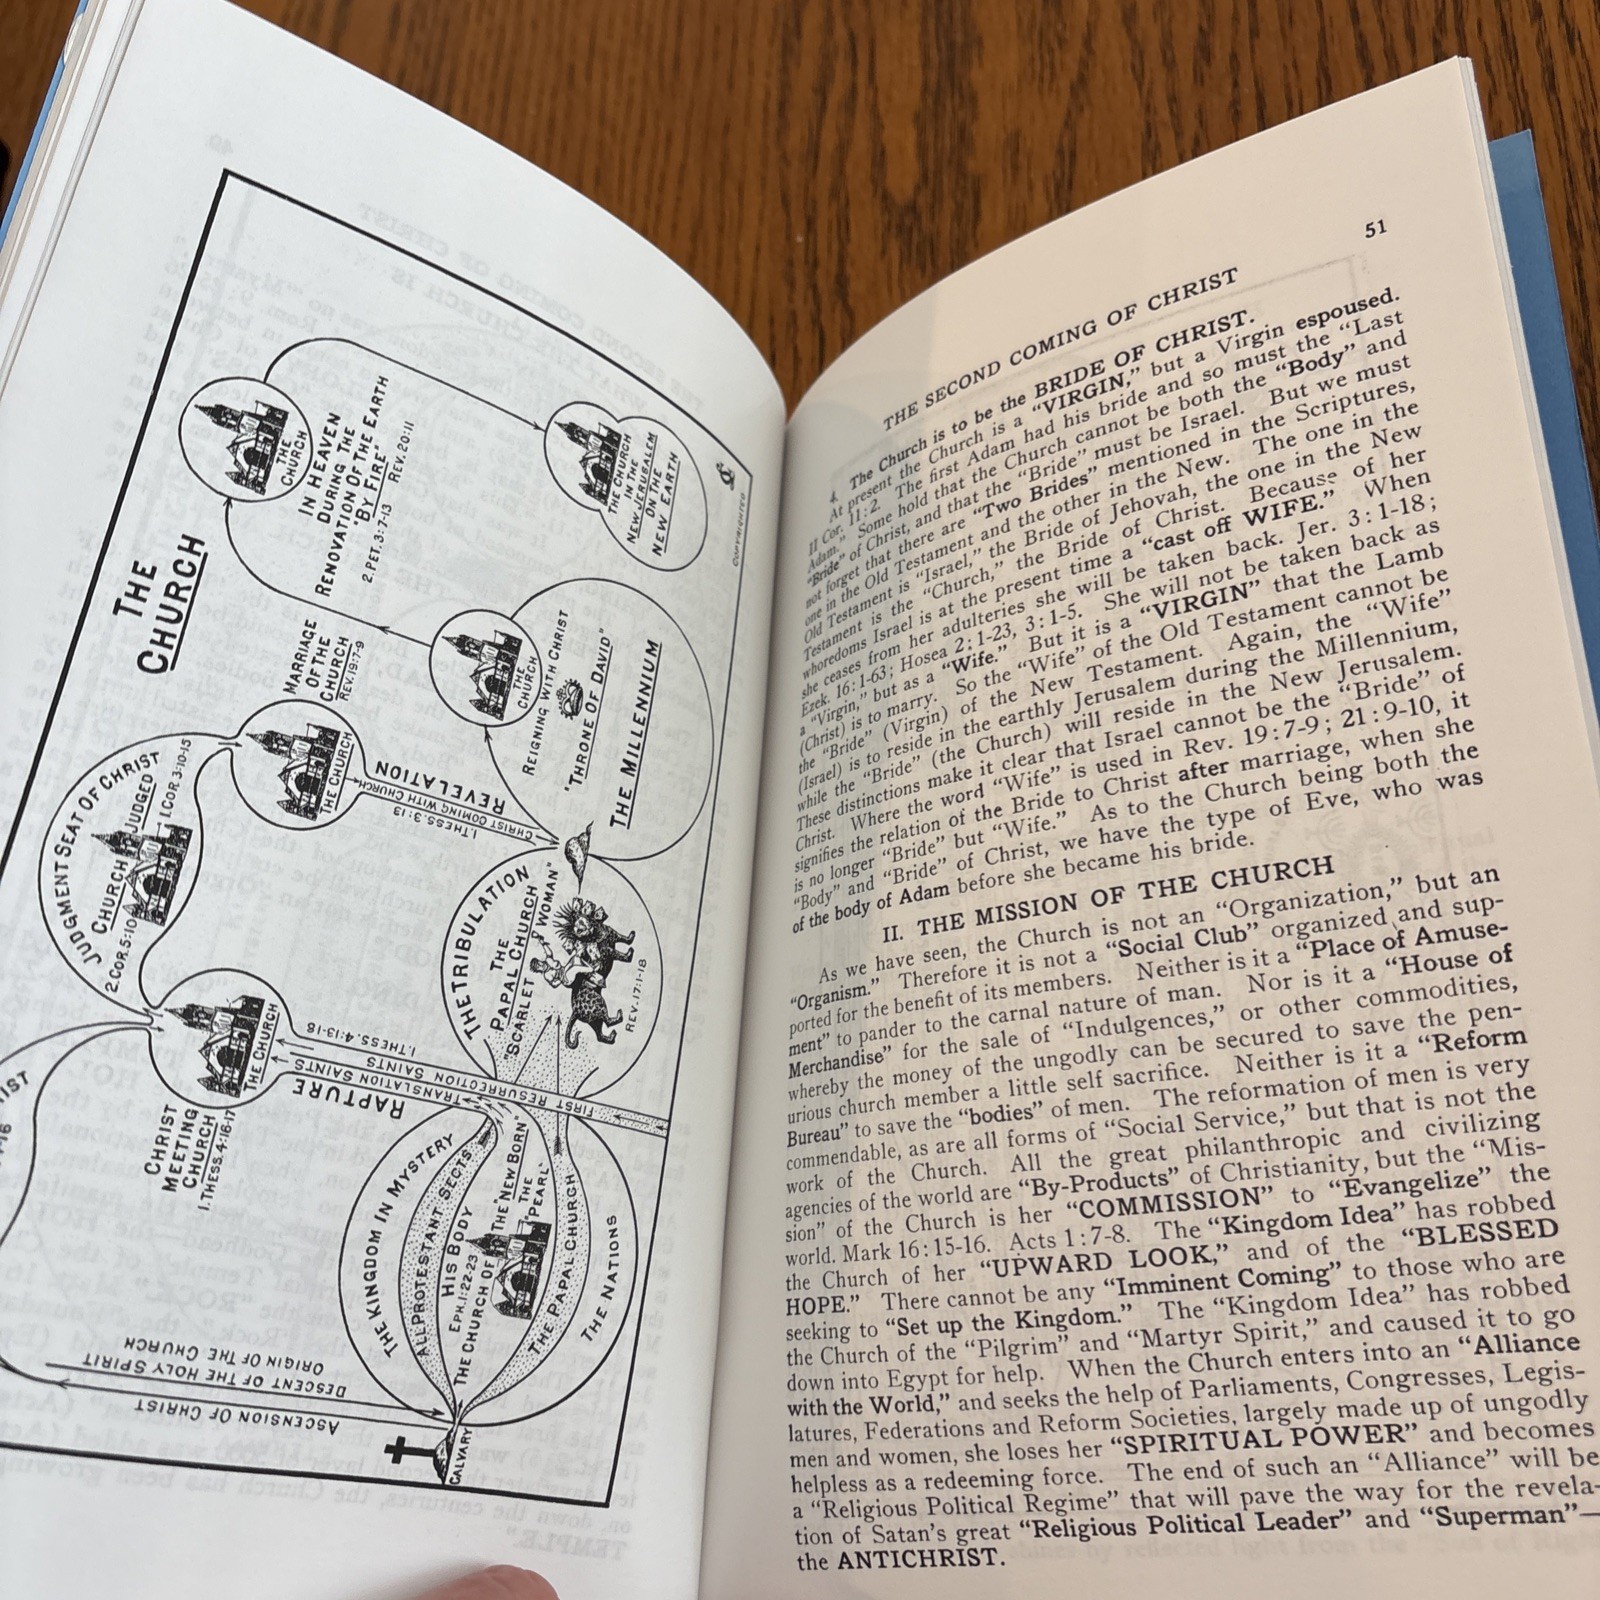 THE
CHURCH
THE
CHURCH
IN HEAVEN
DURING THE
RENOVATION OF THE EARTH
"BY FIRE"
2. PET. 3:7-13 REV. 20:11
THE CHURCH
IN THE
NEW JERUSALEM
ON THE
NEW EARTH
COPYRIGHTED
MARRIAGE
OF THE
CHURCH
REV. 19:7-9
THE
CHURCH
REIGNING WITH CHRIST
"THRONE OF DAVID"
THE MILLENNIUM
JUDGMENT SEAT OF CHRIST
CHURCH JUDGED
2. COR. 5:10 1. COR. 3:10-15
THE CHURCH
REVELATION
CHRIST COMING WITH CHURCH
1. THESS. 3:13
THE TRIBULATION
THE
PAPAL CHURCH
"SCARLET WOMAN"
REV. 17:1-18
THE CHURCH
CHRIST
MEETING
CHURCH
1. THESS. 4:16-17
1. THESS. 4:13-18
RESURRECTION SAINTS
TRANSLATION SAINTS
RAPTURE
FIRST
THE KINGDOM IN MYSTERY
ALL PROTESTANT SECTS
HIS BODY
EPH. 1:22-23
THE CHURCH OF THE "NEW BORN"
THE
"PEARL"
THE PAPAL CHURCH
THE NATIONS
ORIGIN OF THE CHURCH
DESCENT OF THE HOLY SPIRIT
ASCENSION OF CHRIST
CALVARY
51
THE SECOND COMING OF CHRIST
4. The Church is to be the BRIDE OF CHRIST.
At present the Church is a “VIRGIN,” but a Virgin espoused.
II Cor. 11:2. The first Adam had his bride and so must the “Last
Adam.” Some hold that the Church cannot be both the “Body” and
“Bride” of Christ, and that the “Bride” must be Israel. But we must
not forget that there are “Two Brides” mentioned in the Scriptures,
one in the Old Testament and the other in the New. The one in the
Old Testament is “Israel,” the Bride of Jehovah, the one in the New
Testament is the “Church,” the Bride of Christ. Because of her
whoredoms Israel is at the present time a “cast off WIFE.” When
she ceases from her adulteries she will be taken back. Jer. 3:1-18;
Ezek. 16:1-63; Hosea 2:1-23, 3:1-5. She will not be taken back as
a “Virgin,” but as a “Wife.” But it is a “VIRGIN” that the Lamb
(Christ) is to marry. So the “Wife” of the Old Testament cannot be
the “Bride” (Virgin) of the New Testament. Again, the “Wife”
(Israel) is to reside in the earthly Jerusalem during the Millennium,
while the “Bride” (the Church) will reside in the New Jerusalem.
These distinctions make it clear that Israel cannot be the “Bride” of
Christ. Where the word “Wife” is used in Rev. 19:7-9; 21:9-10, it
signifies the relation of the Bride to Christ after marriage, when she
is no longer “Bride” but “Wife.” As to the Church being both the
“Body” and “Bride” of Christ, we have the type of Eve, who was
of the body of Adam before she became his bride.
II. THE MISSION OF THE CHURCH
As we have seen, the Church is not an “Organization,” but an
“Organism.” Therefore it is not a “Social Club” organized and sup-
ported for the benefit of its members. Neither is it a “Place of Amuse-
ment” to pander to the carnal nature of man. Nor is it a “House of
Merchandise” for the sale of “Indulgences,” or other commodities,
whereby the money of the ungodly can be secured to save the pen-
urious church member a little self sacrifice. Neither is it a “Reform
Bureau” to save the “bodies” of men. The reformation of men is very
commendable, as are all forms of “Social Service,” but that is not the
work of the Church. All the great philanthropic and civilizing
agencies of the world are “By-Products” of Christianity, but the “Mis-
sion” of the Church is her “COMMISSION” to “Evangelize” the
world. Mark 16:15-16. Acts 1:7-8. The “Kingdom Idea” has robbed
the Church of her “UPWARD LOOK,” and of the “BLESSED
HOPE.” There cannot be any “Imminent Coming” to those who are
seeking to “Set up the Kingdom.” The “Kingdom Idea” has robbed
the Church of the “Pilgrim” and “Martyr Spirit,” and caused it to go
down into Egypt for help. When the Church enters into an “Alliance
with the World,” and seeks the help of Parliaments, Congresses, Legis-
latures, Federations and Reform Societies, largely made up of ungodly
men and women, she loses her “SPIRITUAL POWER” and becomes
helpless as a redeeming force. The end of such an “Alliance” will be
a “Religious Political Regime” that will pave the way for the revela-
tion of Satan’s great “Religious Political Leader” and “Superman”—
the ANTICHRIST.